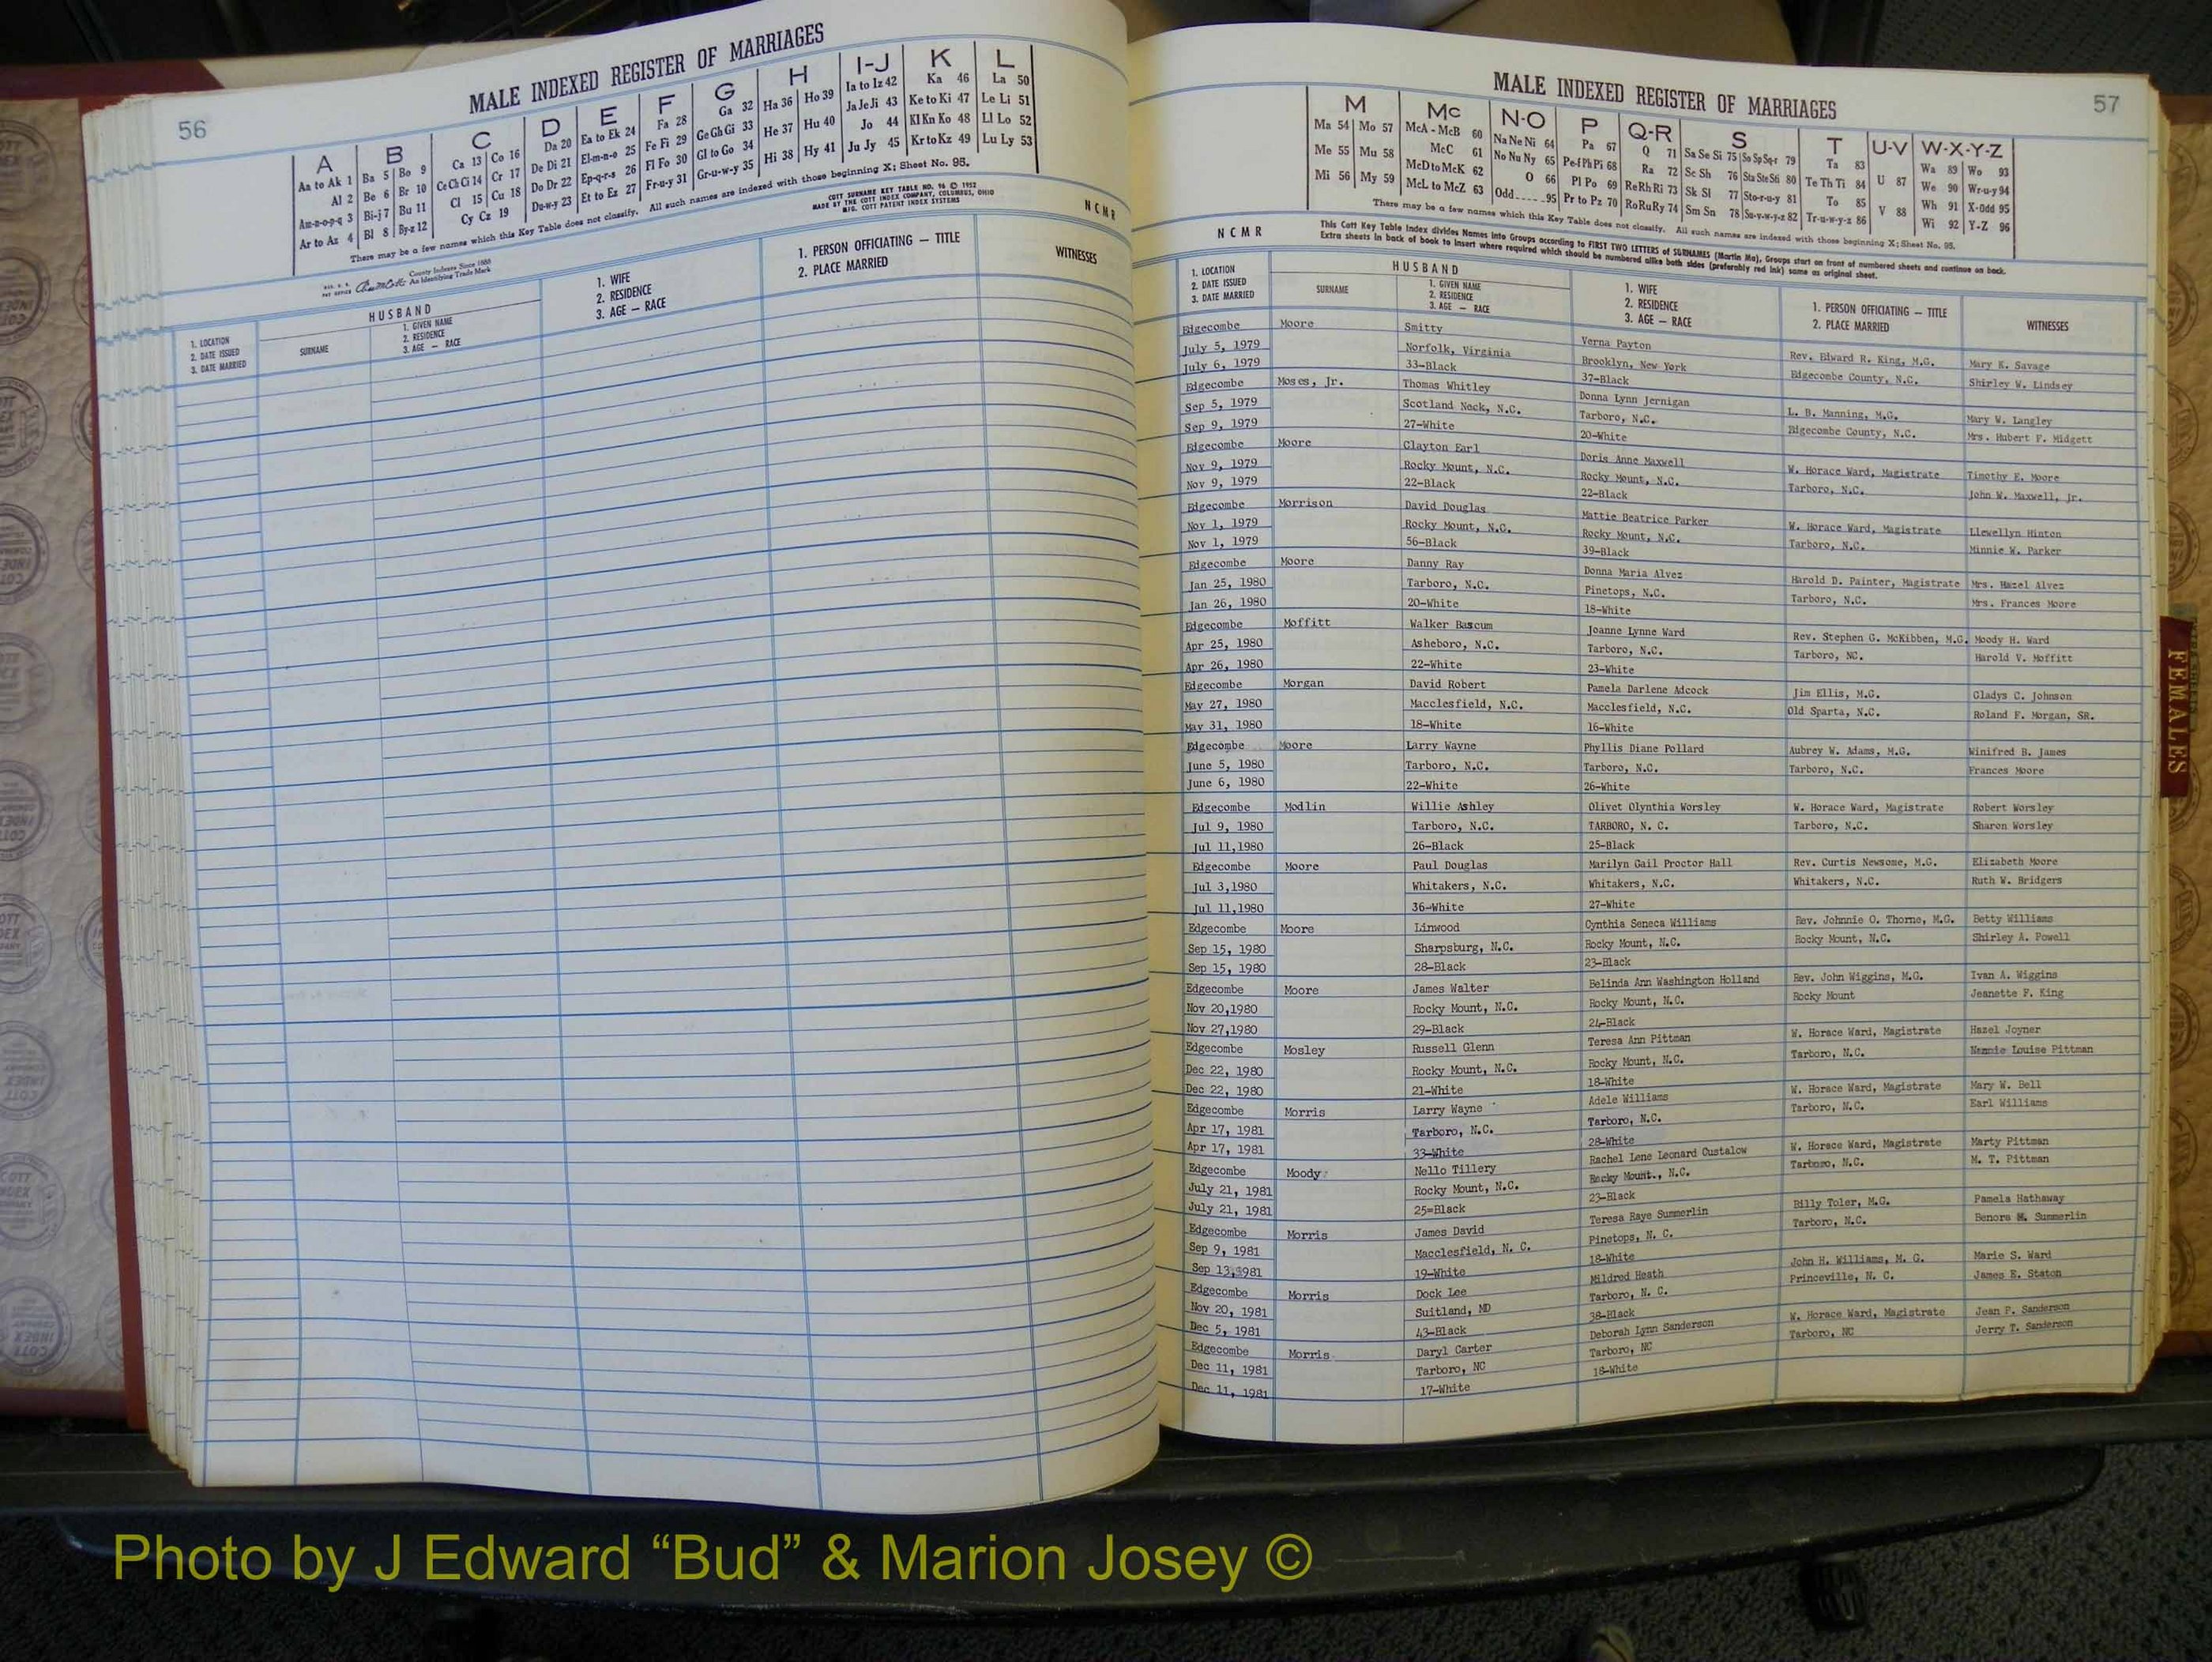 56
MALE INDEXED REGISTER OF MARRIAGES
A B C D E F G H I-J K L
Aa to Ak 1 Ba 5 Bo 9 Ca 13 Co 16 Da 20 Ea to Ek 24 Fa 28 Ga 32 Ha 36 Ho 39 Ia to Iz 42 Ka 46 La 50
Al 2 Be 6 Br 10 Ce Ch Ci 14 Cr 17 De Di 21 El-m-n-o 25 Fe Fi 29 Ge Gh Gi 33 He 37 Hu 40 Ja Je Ji 43 Ke to Ki 47 Le Li 51
Am-n-o-p-q 3 Bi-j 7 Bu 11 Cl 15 Cu 18 Do Dr 22 Ep-q-r-s 26 Fl Fo 30 Gl to Go 34 Hi 38 Hy 41 Jo 44 Kl Kn Ko 48 Ll Lo 52
Ar to Az 4 Bl 8 By-z 12 Cy Cz 19 Du-w-y 23 Et to Ez 27 Fr-u-y 31 Gr-u-w-y 35 Ju Jy 45 Kr to Kz 49 Lu Ly 53
There may be a few names which this Key Table does not classify. All such names are indexed with those beginning X; Sheet No. 95.
County Indexes Since 1888
An Identifying Trade Mark
COTT SURNAME KEY TABLE NO. 96 © 1952
MADE BY THE COTT INDEX COMPANY, COLUMBUS, OHIO
MFG. COTT PATENT INDEX SYSTEMS
NCMR
1. LOCATION
2. DATE ISSUED
3. DATE MARRIED
HUSBAND
SURNAME
1. GIVEN NAME
2. RESIDENCE
3. AGE — RACE
1. WIFE
2. RESIDENCE
3. AGE — RACE
1. PERSON OFFICIATING — TITLE
2. PLACE MARRIED
WITNESSES
57
MALE INDEXED REGISTER OF MARRIAGES
M Mc N-O P Q-R S T U-V W-X-Y-Z
Ma 54 Mo 57 McA - McB 60 Na Ne Ni 64 Pa 67 Q 71 Sa Se Si 75 So Sp Sq-r 79 Ta 83 U 87 Wa 89 Wo 93
Me 55 Mu 58 McC 61 No Nu Ny 65 Pe-f Ph Pi 68 Ra 72 Sc Sh 76 Sta Ste Sti 80 Te Th Ti 84 V 88 We 90 Wr-u-y 94
Mi 56 My 59 McD to McK 62 O 66 Pl Po 69 Re Rh Ri 73 Sk Sl 77 Sto-r-u-y 81 To 85 Wh 91 X-Odd 95
McL to McZ 63 Odd 95 Pr to Pz 70 Ro Ru Ry 74 Sm Sn 78 Su-v-w-y-z 82 Tr-u-w-y-z 86 Wi 92 Y-Z 96
There may be a few names which this Key Table does not classify. All such names are indexed with those beginning X; Sheet No. 95.
NCMR
This Cott Key Table Index divides Names into Groups according to FIRST TWO LETTERS of SURNAMES (Martin Ma). Groups start on front of numbered sheets and continue on back.
Extra sheets in back of book to insert where required which should be numbered alike both sides (preferably red ink) same as original sheet.
1. LOCATION
2. DATE ISSUED
3. DATE MARRIED
HUSBAND
SURNAME
1. GIVEN NAME
2. RESIDENCE
3. AGE — RACE
1. WIFE
2. RESIDENCE
3. AGE — RACE
1. PERSON OFFICIATING — TITLE
2. PLACE MARRIED
WITNESSES
Edgecombe Moore Smitty Verna Payton Rev. Edward R. King, M.G. Mary K. Savage
July 5, 1979 Norfolk, Virginia Brooklyn, New York Edgecombe County, N.C. Shirley W. Lindsey
July 6, 1979 33-Black 37-Black
Edgecombe Moses, Jr. Thomas Whitley Donna Lynn Jernigan L. B. Manning, M.G. Mary W. Langley
Sep 5, 1979 Scotland Neck, N.C. Tarboro, N.C. Edgecombe County, N.C. Mrs. Hubert F. Midgett
Sep 9, 1979 27-White 20-White
Edgecombe Moore Clayton Earl Doris Anne Maxwell W. Horace Ward, Magistrate Timothy E. Moore
Nov 9, 1979 Rocky Mount, N.C. Rocky Mount, N.C. Tarboro, N.C. John W. Maxwell, Jr.
Nov 9, 1979 22-Black 22-Black
Edgecombe Morrison David Douglas Mattie Beatrice Parker W. Horace Ward, Magistrate Llewellyn Hinton
Nov 1, 1979 Rocky Mount, N.C. Rocky Mount, N.C. Tarboro, N.C. Minnie W. Parker
Nov 1, 1979 56-Black 39-Black
Edgecombe Moore Danny Ray Donna Maria Alvez Harold D. Painter, Magistrate Mrs. Hazel Alvez
Jan 25, 1980 Tarboro, N.C. Pinetops, N.C. Tarboro, N.C. Mrs. Frances Moore
Jan 26, 1980 20-White 18-White
Edgecombe Moffitt Walker Bascum Joanne Lynne Ward Rev. Stephen G. McKibben, M.G. Moody H. Ward
Apr 25, 1980 Asheboro, N.C. Tarboro, N.C. Tarboro, NC. Harold V. Moffitt
Apr 26, 1980 22-White 23-White
Edgecombe Morgan David Robert Pamela Darlene Adcock Jim Ellis, M.G. Gladys C. Johnson
May 27, 1980 Macclesfield, N.C. Macclesfield, N.C. Old Sparta, N.C. Roland F. Morgan, SR.
May 31, 1980 18-White 16-White
Edgecombe Moore Larry Wayne Phyllis Diane Pollard Aubrey W. Adams, M.G. Winifred B. James
June 5, 1980 Tarboro, N.C. Tarboro, N.C. Tarboro, N.C. Frances Moore
June 6, 1980 22-White 26-White
Edgecombe Modlin Willie Ashley Olivet Olynthia Worsley W. Horace Ward, Magistrate Robert Worsley
Jul 9, 1980 Tarboro, N.C. TARBORO, N. C. Tarboro, N.C. Sharon Worsley
Jul 11,1980 26-Black 25-Black
Edgecombe Moore Paul Douglas Marilyn Gail Proctor Hall Rev. Curtis Newsome, M.G. Elizabeth Moore
Jul 3,1980 Whitakers, N.C. Whitakers, N.C. Whitakers, N.C. Ruth W. Bridgers
Jul 11,1980 36-White 27-White
Edgecombe Moore Linwood Cynthia Seneca Williams Rev. Johnnie O. Thorne, M.G. Betty Williams
Sep 15, 1980 Sharpsburg, N.C. Rocky Mount, N.C. Rocky Mount, N.C. Shirley A. Powell
Sep 15, 1980 28-Black 23-Black
Edgecombe Moore James Walter Belinda Ann Washington Holland Rev. John Wiggins, M.G. Ivan A. Wiggins
Nov 20,1980 Rocky Mount, N.C. Rocky Mount, N.C. Rocky Mount Jeanette F. King
Nov 27,1980 29-Black 24-Black
Edgecombe Mosley Russell Glenn Teresa Ann Pittman W. Horace Ward, Magistrate Hazel Joyner
Dec 22, 1980 Rocky Mount, N.C. Rocky Mount, N.C. Tarboro, N.C. Nannie Louise Pittman
Dec 22, 1980 21-White 18-White
Edgecombe Morris Larry Wayne Adele Williams W. Horace Ward, Magistrate Mary W. Bell
Apr 17, 1981 Tarboro, N.C. Tarboro, N.C. Tarboro, N.C. Earl Williams
Apr 17, 1981 33-White 28-White
Edgecombe Moody Nello Tillery Rachel Lene Leonard Oustalow W. Horace Ward, Magistrate Marty Pittman
July 21, 1981 Rocky Mount, N.C. Rocky Mount., N.C. Tarboro, N.C. M. T. Pittman
July 21, 1981 25=Black 23-Black
Edgecombe Morris James David Teresa Raye Summerlin Billy Toler, M.G. Pamela Hathaway
Sep 9, 1981 Macclesfield, N. C. Pinetops, N. C. Tarboro, N.C. Benora M. Summerlin
Sep 13, 1981 19-White 18-White
Edgecombe Morris Dock Lee Mildred Heath John H. Williams, M. G. Marie S. Ward
Nov 20, 1981 Suitland, MD Tarboro, N. C. Princeville, N. C. James E. Staton
Dec 5, 1981 43-Black 38-Black
Edgecombe Morris Daryl Carter Deborah Lynn Sanderson W. Horace Ward, Magistrate Jean P. Sanderson
Dec 11, 1981 Tarboro, NC Tarboro, NC Tarboro, NC Jerry T. Sanderson
Dec 11, 1981 17-White 18-White
FEMALES
Photo by J Edward “Bud” & Marion Josey ©